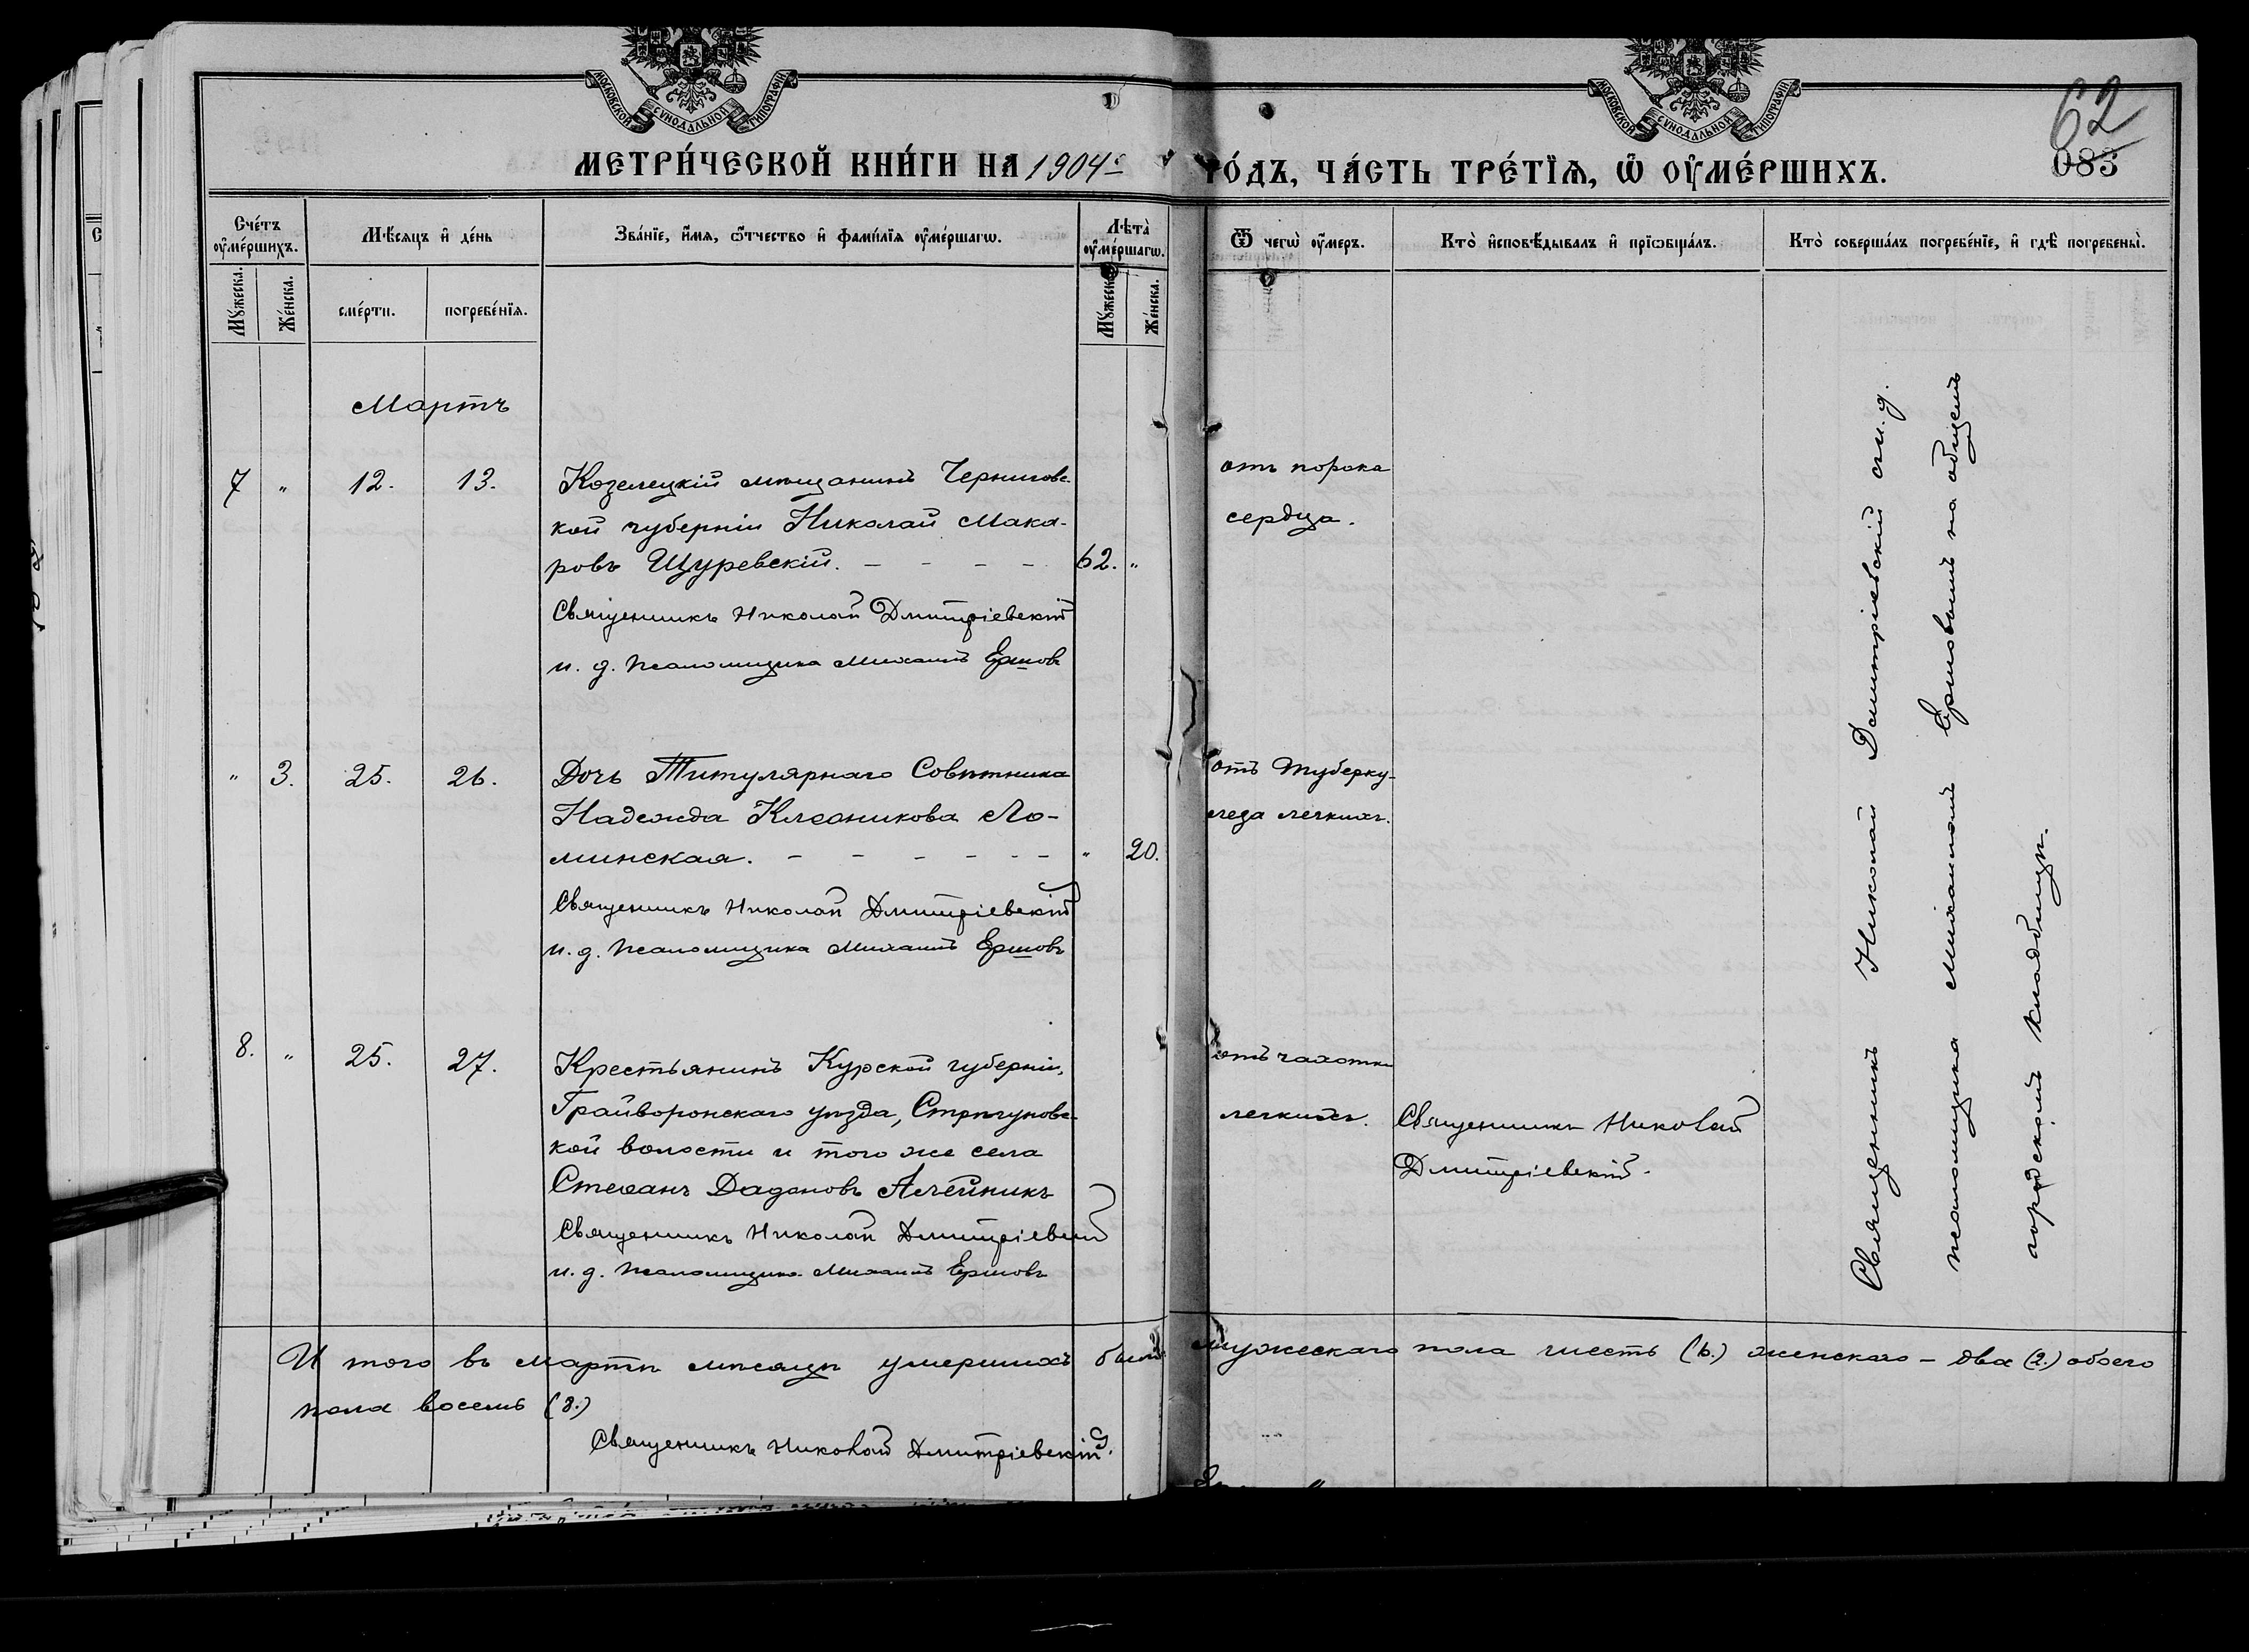 МОСКОВСКОЙ СУНОДАЛЬНОЙ ТИПОГРАФІИ
МОСКОВСКОЙ СУНОДАЛЬНОЙ ТИПОГРАФІИ
62
083
МЕТРИ́ЧЕСКОЙ КНИ́ГИ НА 1904 го́дъ, ЧА́СТЬ ТРЕ́ТЇѦ, Ѿ ОУ҆МЕ́РШИХЪ.
Сче́тъ оу҆ме́ршихъ.
Мѣ́сяцъ и҆ де́нь
Зва́нїе, и҆́мѧ, ѻ҆́тчество и҆ фамі́лїѧ оу҆ме́ршагѡ.
Лѣ́та оу҆ме́ршагѡ.
Ѿ чегѡ̀ оу҆́меръ.
Кто̀ и҆сповѣ́дывалъ и҆ прїѡбща́лъ.
Кто̀ соверша́лъ погребе́нїе, и҆ гдѣ̀ погребены̀.
Мꙋ́жеска.
Же́нска.
сме́рти.
погребе́нїѧ.
Мꙋ́жеска.
Же́нска.
Мартъ
7 " 12. 13. Козелецкій мѣщанинъ Черниговс- отъ порока
кой губерніи Николай Мака- сердца.
ровъ Щуревскій. - - - - 62. "
Священникъ Николай Дмитріевскій
и. д. псаломщика Михаилъ Ершовъ
" 3. 25. 26. Дочь Титулярнаго Совѣтника отъ туберку-
Надежда Клеоникова Ло- леза легкихъ.
минская. - - - - - - " 20.
Священникъ Николай Дмитріевскій
и. д. псаломщика Михаилъ Ершовъ
8. " 25. 27. Крестьянинъ Курской губерніи, отъ чахотки
Грайворонскаго уѣзда, Стригуновс- легкихъ. Священникъ Николай
кой волости и того же села Дмитріевскій.
Стефанъ Алейникъ
Священникъ Николай Дмитріевскій
и. д. псаломщика Михаилъ Ершовъ
Священникъ Николай Дмитріевскій съ и. д.
псаломщика Михаиломъ Ершовымъ на общемъ
городскомъ кладбищѣ.
И того въ мартѣ мѣсяцѣ умершихъ было мужескаго пола шесть (6.) женскаго - два (2.) обоего
пола восемь (8.)
Священникъ Николай Дмитріевскій.